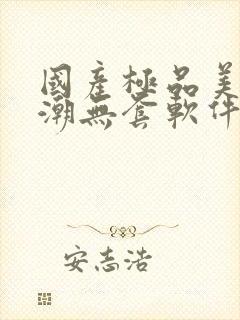 國産極品美
潮無套軟件
安志浩